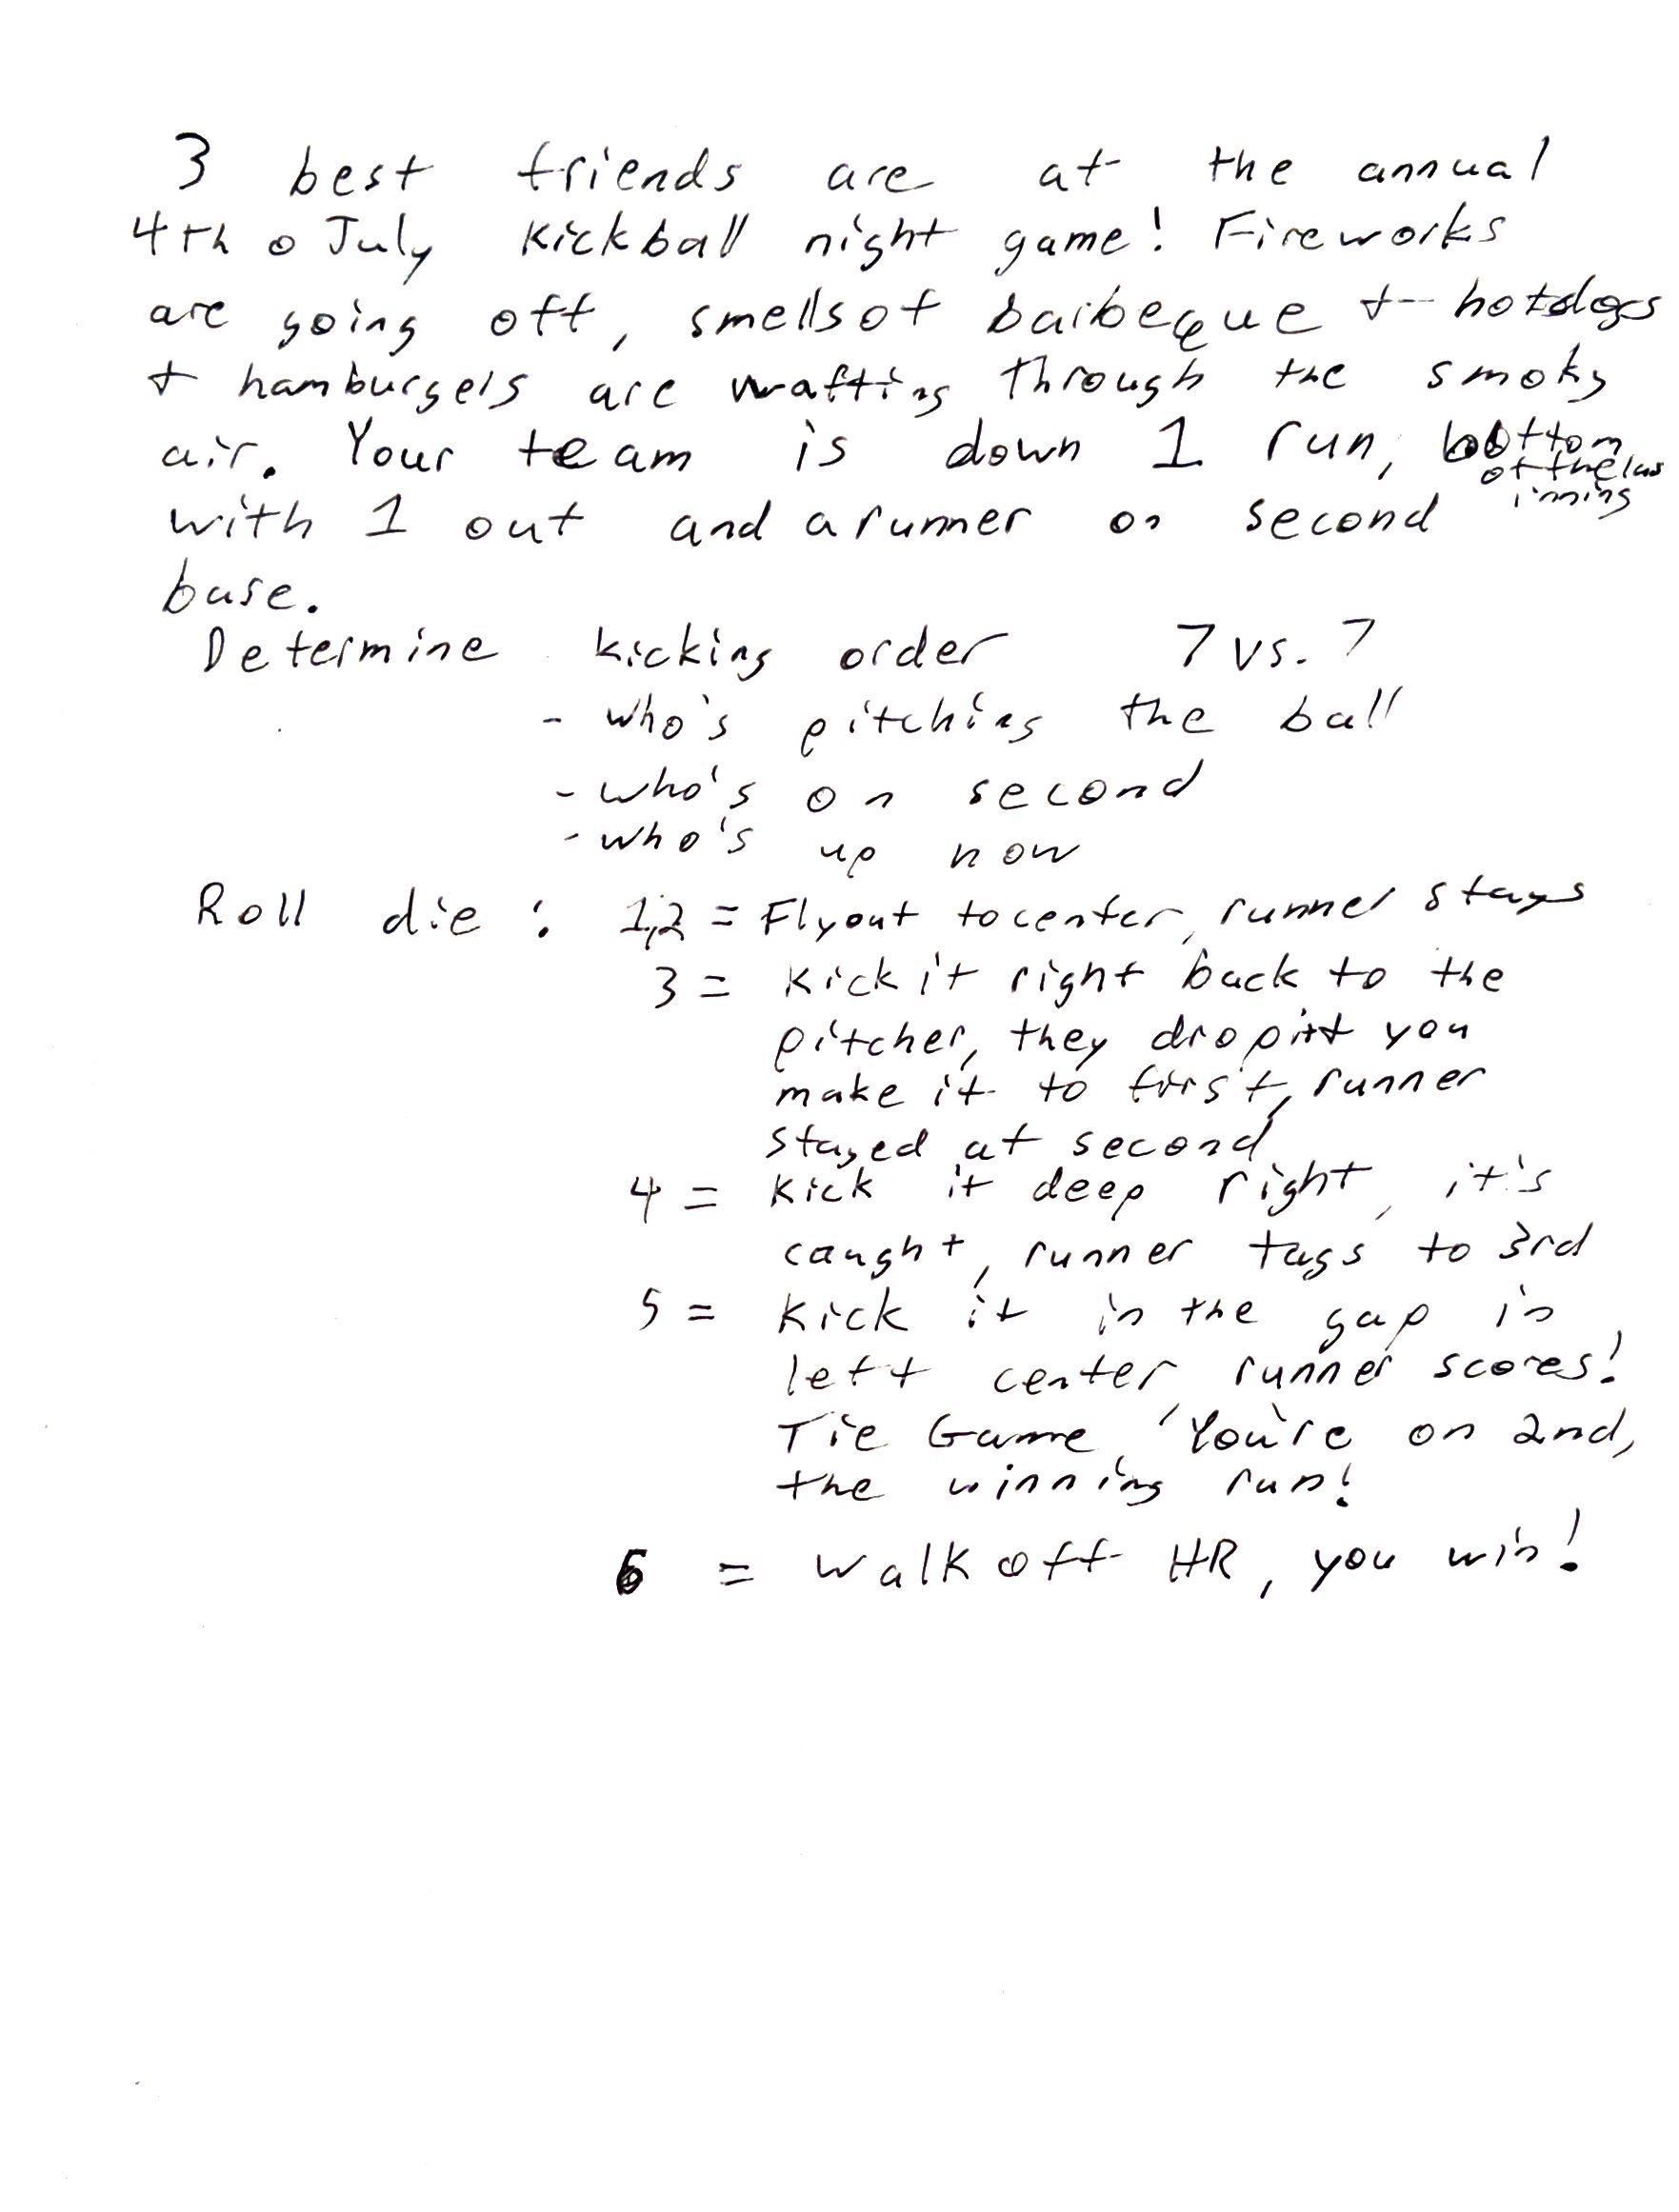 3 best friends are at the annual
4th o July kickball night game! Fireworks
are going off, smells of barbeque + hotdogs
+ hamburgers are wafting through the smoky
air. Your team is down 1 run, bottom
of the las
inning
with 1 out and a runner on second
base.
Determine kicking order 7 vs. 7
- who's pitching the ball
- who's on second
- who's up now
Roll die : 1,2 = Flyout to center, runner stays
3 = Kick it right back to the
pitcher, they drop it you
make it to first, runner
stayed at second
4 = Kick it deep right, it's
caught, runner tags to 3rd
5 = Kick it in the gap in
left center, runner scores!
Tie Game, You're on 2nd,
the winning run!
6 = Walk off HR, you win!